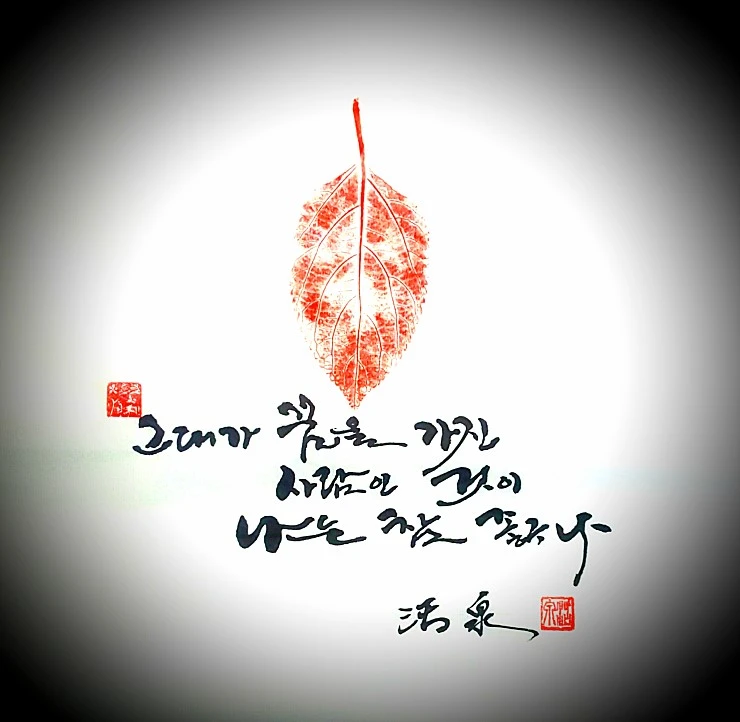 그대가 꿈을 가진
사람인 것이
나는 참 좋다
活泉